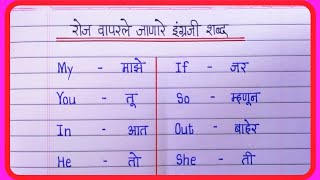 रोज वापरले जाणारे इंग्रजी शब्द
My - माझे
If - जर
You - तू
So - म्हणून
In - आत
Out - बाहेर
He - तो
She - ती